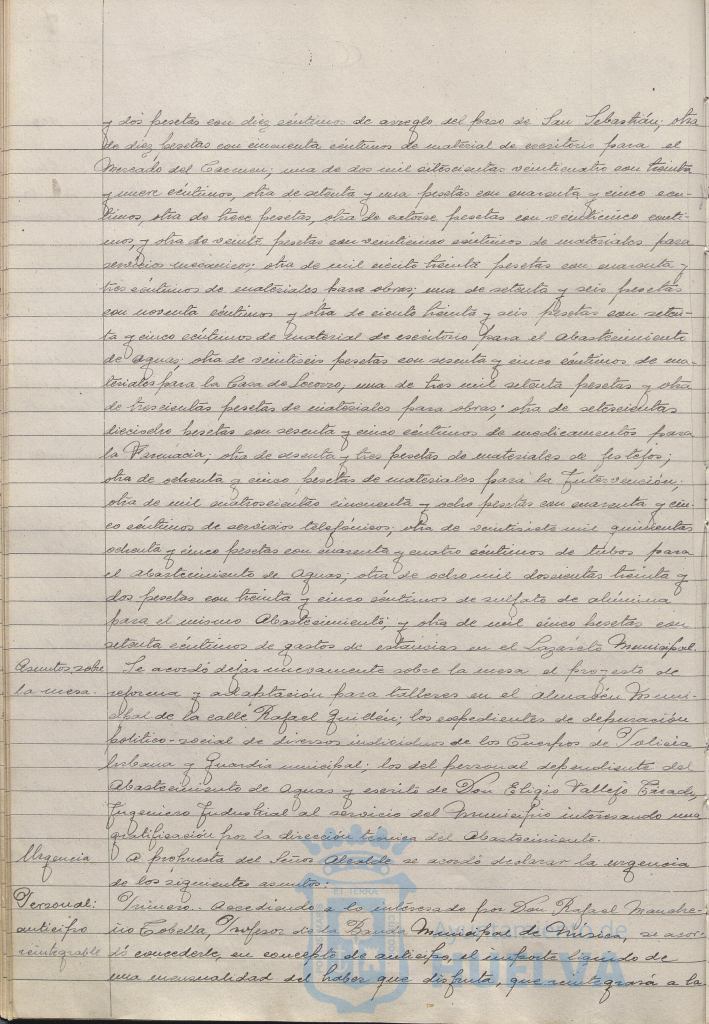 y dos pesetas con diez céntimos de arreglo del paso de San Sebastián; otra
de diez pesetas con cincuenta céntimos de material de escritorio para el
Mercado del Carmen; una de dos mil setecientas veinticuatro con treinta
y nueve céntimos, otra de setenta y una pesetas con cuarenta y cinco cén-
timos, otra de trece pesetas, otra de catorce pesetas con veinticinco cénti-
mos, y otra de veinte pesetas con veinticinco céntimos de materiales para
servicios mecánicos; otra de mil ciento treinta pesetas con cuarenta y
tres céntimos de materiales para obras; una de setenta y seis pesetas
con noventa céntimos y otra de ciento treinta y seis pesetas con seten-
ta y cinco céntimos de material de escritorio para el Abastecimiento
de Aguas; otra de veintiseis pesetas con sesenta y cinco céntimos de ma-
teriales para la Casa de Socorro; una de tres mil setenta pesetas y otra
de trescientas pesetas de materiales para obras; otra de setecientas
dieciocho pesetas con sesenta y cinco céntimos de medicamentos para
la Farmacia; otra de sesenta y tres pesetas de materiales de festejos;
otra de ochenta y cinco pesetas de materiales para la Intervención;
otra de mil cuatrocientas cincuenta y ocho pesetas con cuarenta y cin-
co céntimos de servicios telefónicos; otra de veintisiete mil quinientas
ochenta y cinco pesetas con cuarenta y cuatro céntimos de tubos para
el abastecimiento de Aguas; otra de ocho mil doscientas treinta y
dos pesetas con treinta y cinco céntimos de sulfato de alúmina
para el mismo Abastecimiento; y otra de mil cinco pesetas con
setenta céntimos de gastos de estancias en el Lazareto Municipal.
Asuntos sobre la mesa.
Se acordó dejar nuevamente sobre la mesa el proyecto de
reforma y adaptación para talleres en el Almacén Muni-
cipal de la calle Rafael Guillén; los expedientes de depuración
político-social de diversos individuos de los Cuerpos de Policía
Urbana y Guardia municipal; los del personal dependiente del
Abastecimiento de Aguas y escrito de Don Eligio Vallejo
Ingeniero Industrial al servicio del Municipio interesando una
gratificación por la dirección técnica del Abastecimiento.
Urgencia
A propuesta del Señor Alcalde se acordó declarar la urgencia
de los siguientes asuntos:
Personal:
anticipo
reintegrable
Primero. Accediendo a lo interesado por Don Rafael
Profesor de la Banda Municipal de Música, se acor-
dó concederle, en concepto de anticipo, el importe líquido de
una mensualidad del haber que disfruta, que reintegrará a la
Ayuntamiento de
HUELVA